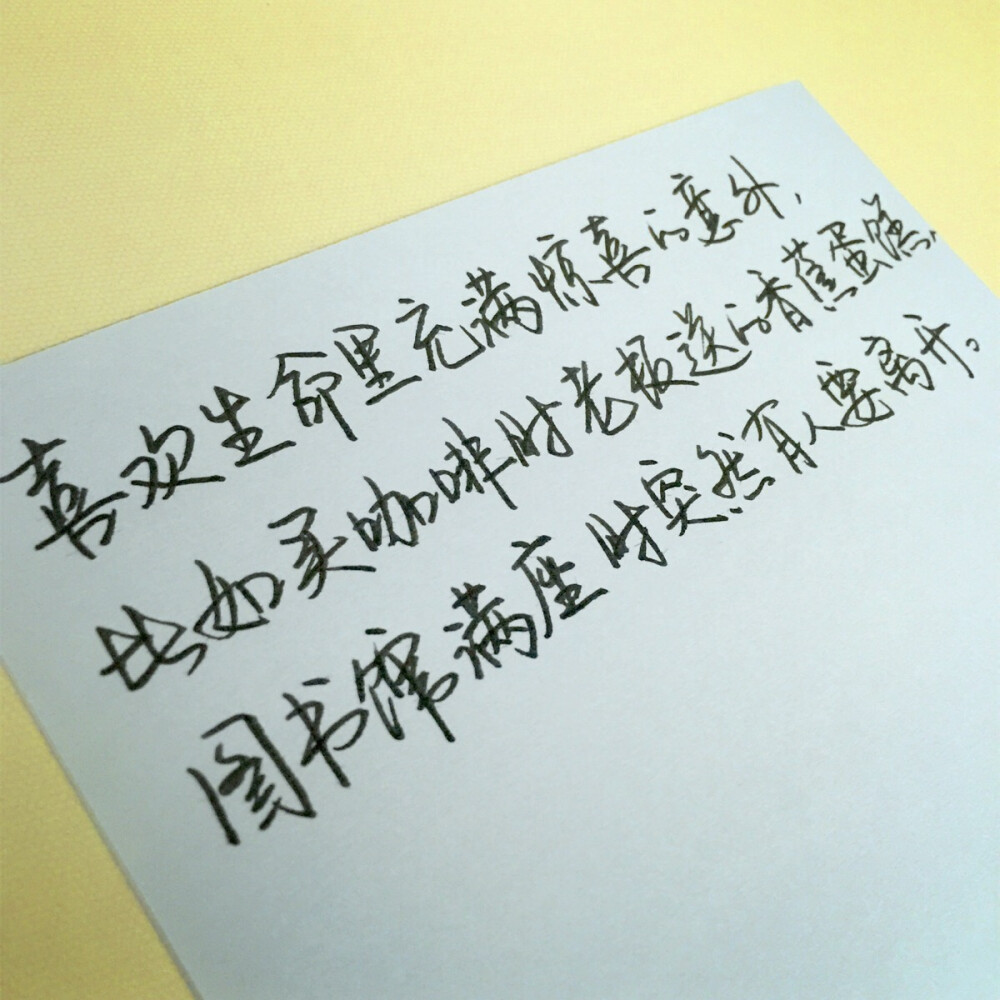 喜欢生命里充满惊喜的意外，
比如买咖啡时老板送的香蕉蛋糕，
图书馆满座时突然有人要离开。